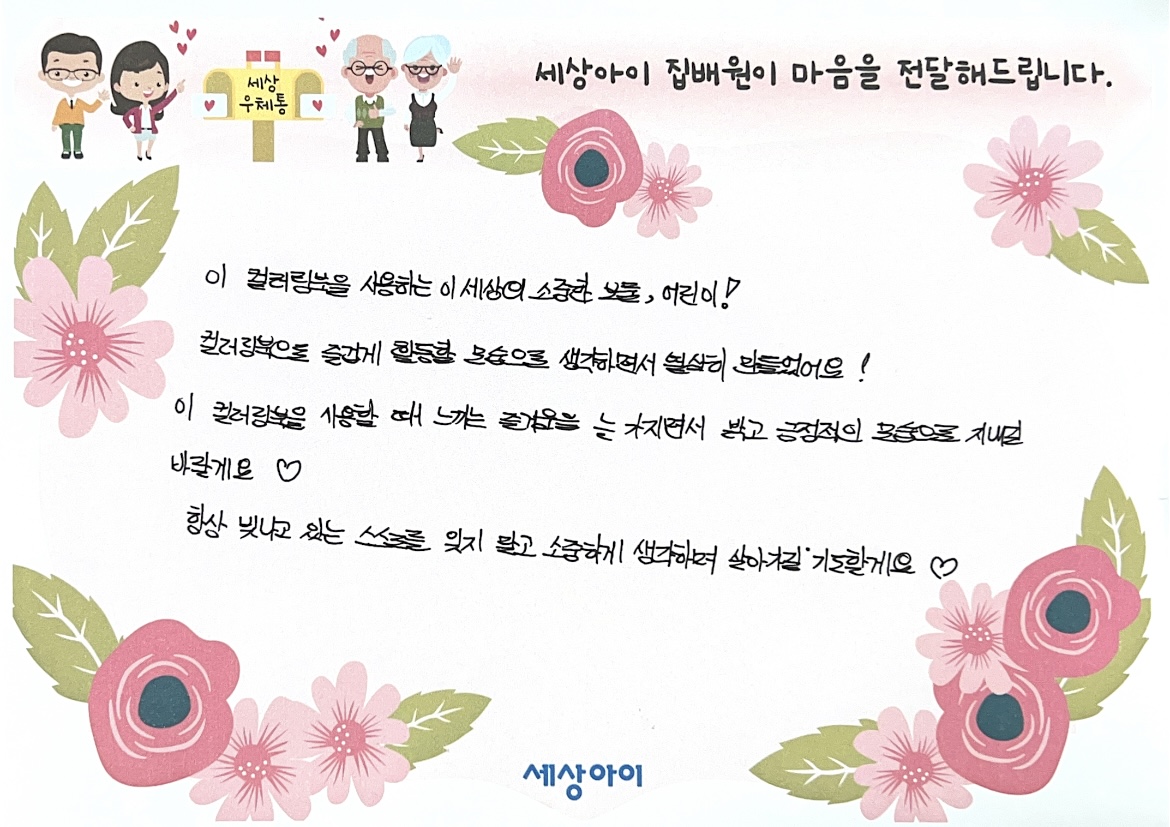 세상아이 집배원이 마음을 전달해드립니다.
세상
우체통
이 컬러링북을 사용하는 이 세상의 소중한 보물, 어린이!
컬러링북으로 즐겁게 활동할 모습으로 생각하면서 열심히 만들었어요!
이 컬러링북을 사용할 때 느끼는 즐거움을 늘 가지면서 밝고 긍정적인 모습으로 지내길
바랄게요 ♡
항상 빛나고 있는 스스로를 잊지 말고 소중하게 생각하며 살아가길 기도할게요 ♡
세상아이